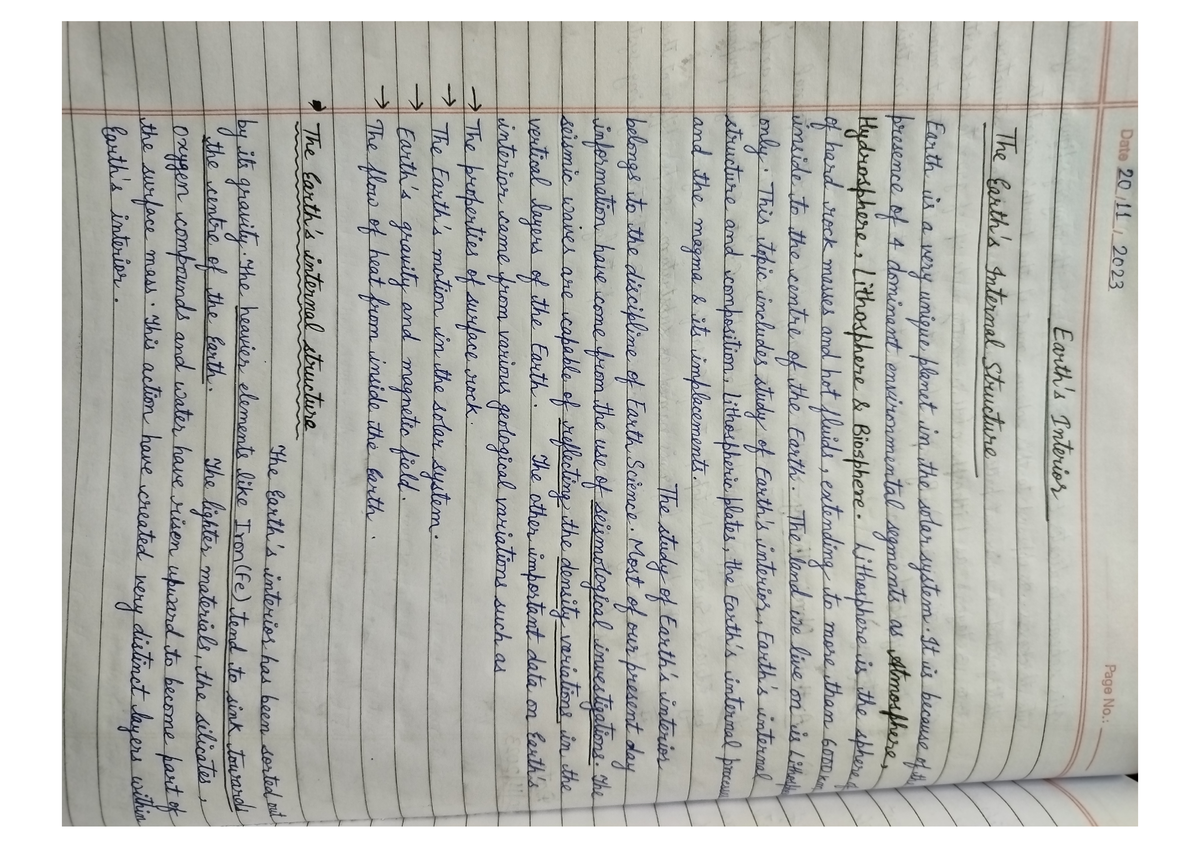 Date 20/11/2023
Page No.:
Earth's Interior
The Earth's Internal Structure
Earth is a very unique planet in the solar system. It is because of the
presence of 4 dominant environmental segments as Atmosphere,
Hydrosphere, Lithosphere & Biosphere. Lithosphere is the sphere
of hard rock masses and hot fluids, extending to more than 6000 km
inside to the centre of the Earth. The land we live on is
only. This topic includes study of Earth's interior, Earth's internal
structure and composition, lithospheric plates, the Earth's internal
and the magma & its implecements.
The study of Earth's interior
belongs to the discipline of Earth Science. Most of our present day
information have come from the use of seismological investigations. The
seismic waves are capable of reflecting the density variations in the
vertical layers of the Earth. The other important data on Earth's
interior come from various geological variations such as
→ The properties of surface rock.
→ The Earth's motion in the solar system.
→ Earth's gravity and magnetic field.
→ The flow of heat from inside the Earth.
• The Earth's internal structure
The Earth's interior has been sorted out
by its gravity. The heavier elements like Iron(Fe) tend to sink toward
the centre of the Earth. The lighter materials, the silicates,
oxygen compounds and water have risen upward to become part of
the surface mass. This action have created very distinct layers within
Earth's interior.